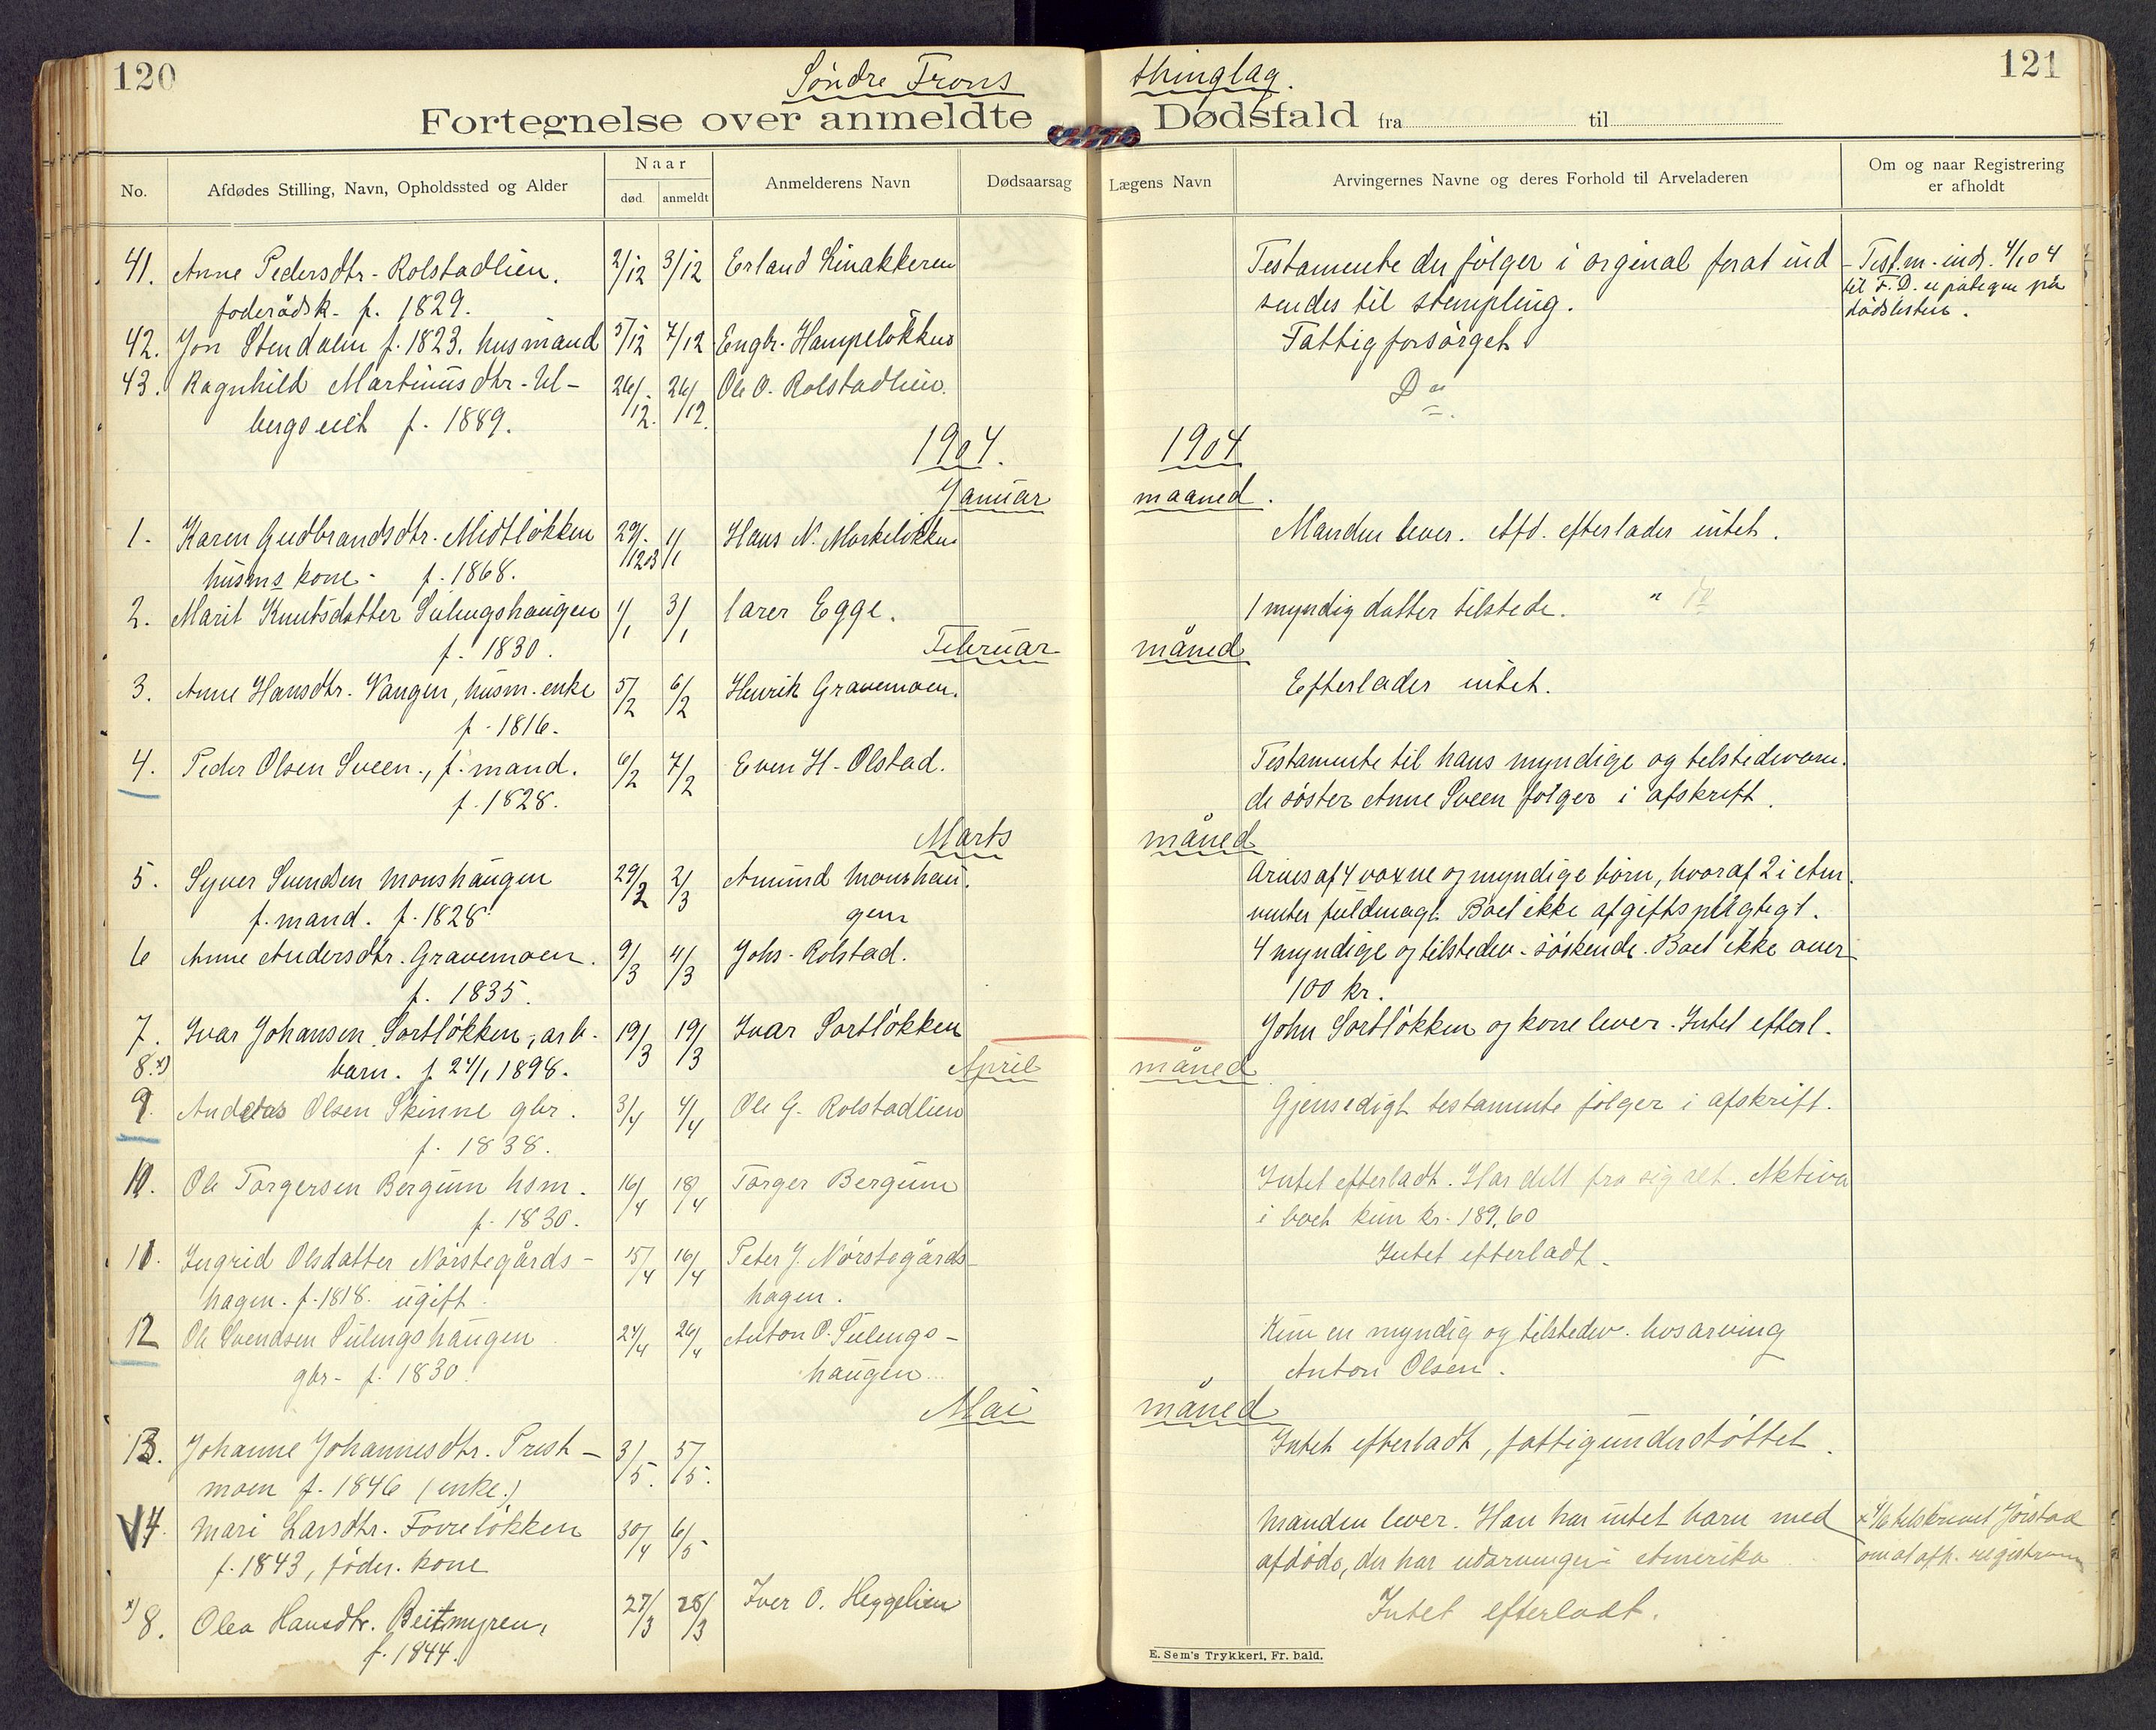 120
Søndre Frons
thinglag.
121
Fortegnelse over anmeldte
Dødsfald fra til
No.
Afdødes Stilling, Navn, Opholdssted og Alder
Naar
død.
anmeldt
Anmelderens Navn
Dødsaarsag
Lægens Navn
Arvingernes Navne og deres Forhold til Arveladeren
Om og naar Registrering
er afholdt
41. Anne Pedersdtr. Rolstadlien. 2/12 3/12 Erland Linakkeren Testamente der følger i orginal forat ind - Test.m. inds. 4/1 04
foderådsk. f. 1829. sendes til stempling. til F. D. påtegn på
dødslisten.
42. Jon Stendalen f. 1823. husmand 5/12 7/12 Engbr. Hampeløkken Fattigforsørget
43. Ragnhild Martinusdtr. Ul- 26/12. 26/12. Ole O. Rolstadlien. Do
bergseiet f. 1889.
1904. 1904
Januar maaned.
1. Karen Gudbrandsdtr. Midtløkken 29/12 03 1/1 Hans N. Morkeløkken Manden lever. Afd. efterlader intet.
husms kone - f. 1868.
2. Marit Knutsdatter Sulungshaugen 1/1 3/1 lærer Egge. 1 myndig datter tilstede. "
f. 1830.
Februar måned
3. Anne Hansdtr. Vangen, husm. enke 5/2 6/2 Henrik Gravemoen. Efterlader intet.
f. 1816.
4. Peder Olsen Sveen, f. mand. 6/2 7/2 Even H. Olstad. Testamente til hans myndige og tilstedeværen.
f. 1828. de søster Anne Sveen følger i afskrift.
Marts måned
5. Syver Svendsen Monshaugen 29/2 2/3 Amund Monshau. Arves af 4 voxne og myndige børn, hvoraf 2 i Am.
f. mand. f. 1828 gen venter fuldmagt. Boet ikke afgiftspligtigt.
6 Anne Andersdtr. Gravemoen. 9/3 4/3 Johs. Rolstad. 4 myndige og tilstedev. søskende. Boet ikke over
f. 1835. 100 kr.
7. Ivar Johansen Sortløkken, arb. 19/3 19/3 Ivar Sortløkken John Sortløkken og kone lever. Intet efterl.
8.x) barn. f. 24/1 1898.
April måned
9. Andreas Olsen Skinne gbr. 3/4 4/4 Ole G. Rolstadlien Gjensedigt testamente følger i afskrift.
f. 1838.
10. Ole Torgersen Bergum hsm. 16/4 18/4 Torger Bergum Intet efterladt. Har delt fra sig alt. Aktiva
f. 1830. i boet kun kr. 189,60
11. Ingrid Olsdatter Nørstegårds- 15/4 16/4 Peter J. Nørstegårds- Intet efterladt.
hagen. f. 1818. ugift. hagen.
12 Ole Svendsen Sulungshaugen 24/4 26/4 Anton O. Sulungs- Kun en myndig og tilstedev. livsarving
gbr. f. 1830. haugen Anton Olsen.
Mai måned
13. Johanne Johannesdtr. Prest- 3/5. 5/5. Intet efterladt, fattigunderstøttet.
moen f. 1846 (enke.)
14. Mari Larsdtr. Forreløkken 30/4 6/5 Manden lever. Han har intet barn med x 4/6 tilskrevet Jørstad
f. 1843, føder. kone afdøde, der har udarvinger i Amerika om at afh. registrering
x) 8. Olea Hansdtr. Beitmyren, 27/3 28/3 Iver O. Heggelien Intet efterladt.
f. 1844.
E. Sem's Trykkeri, Fr. hald.